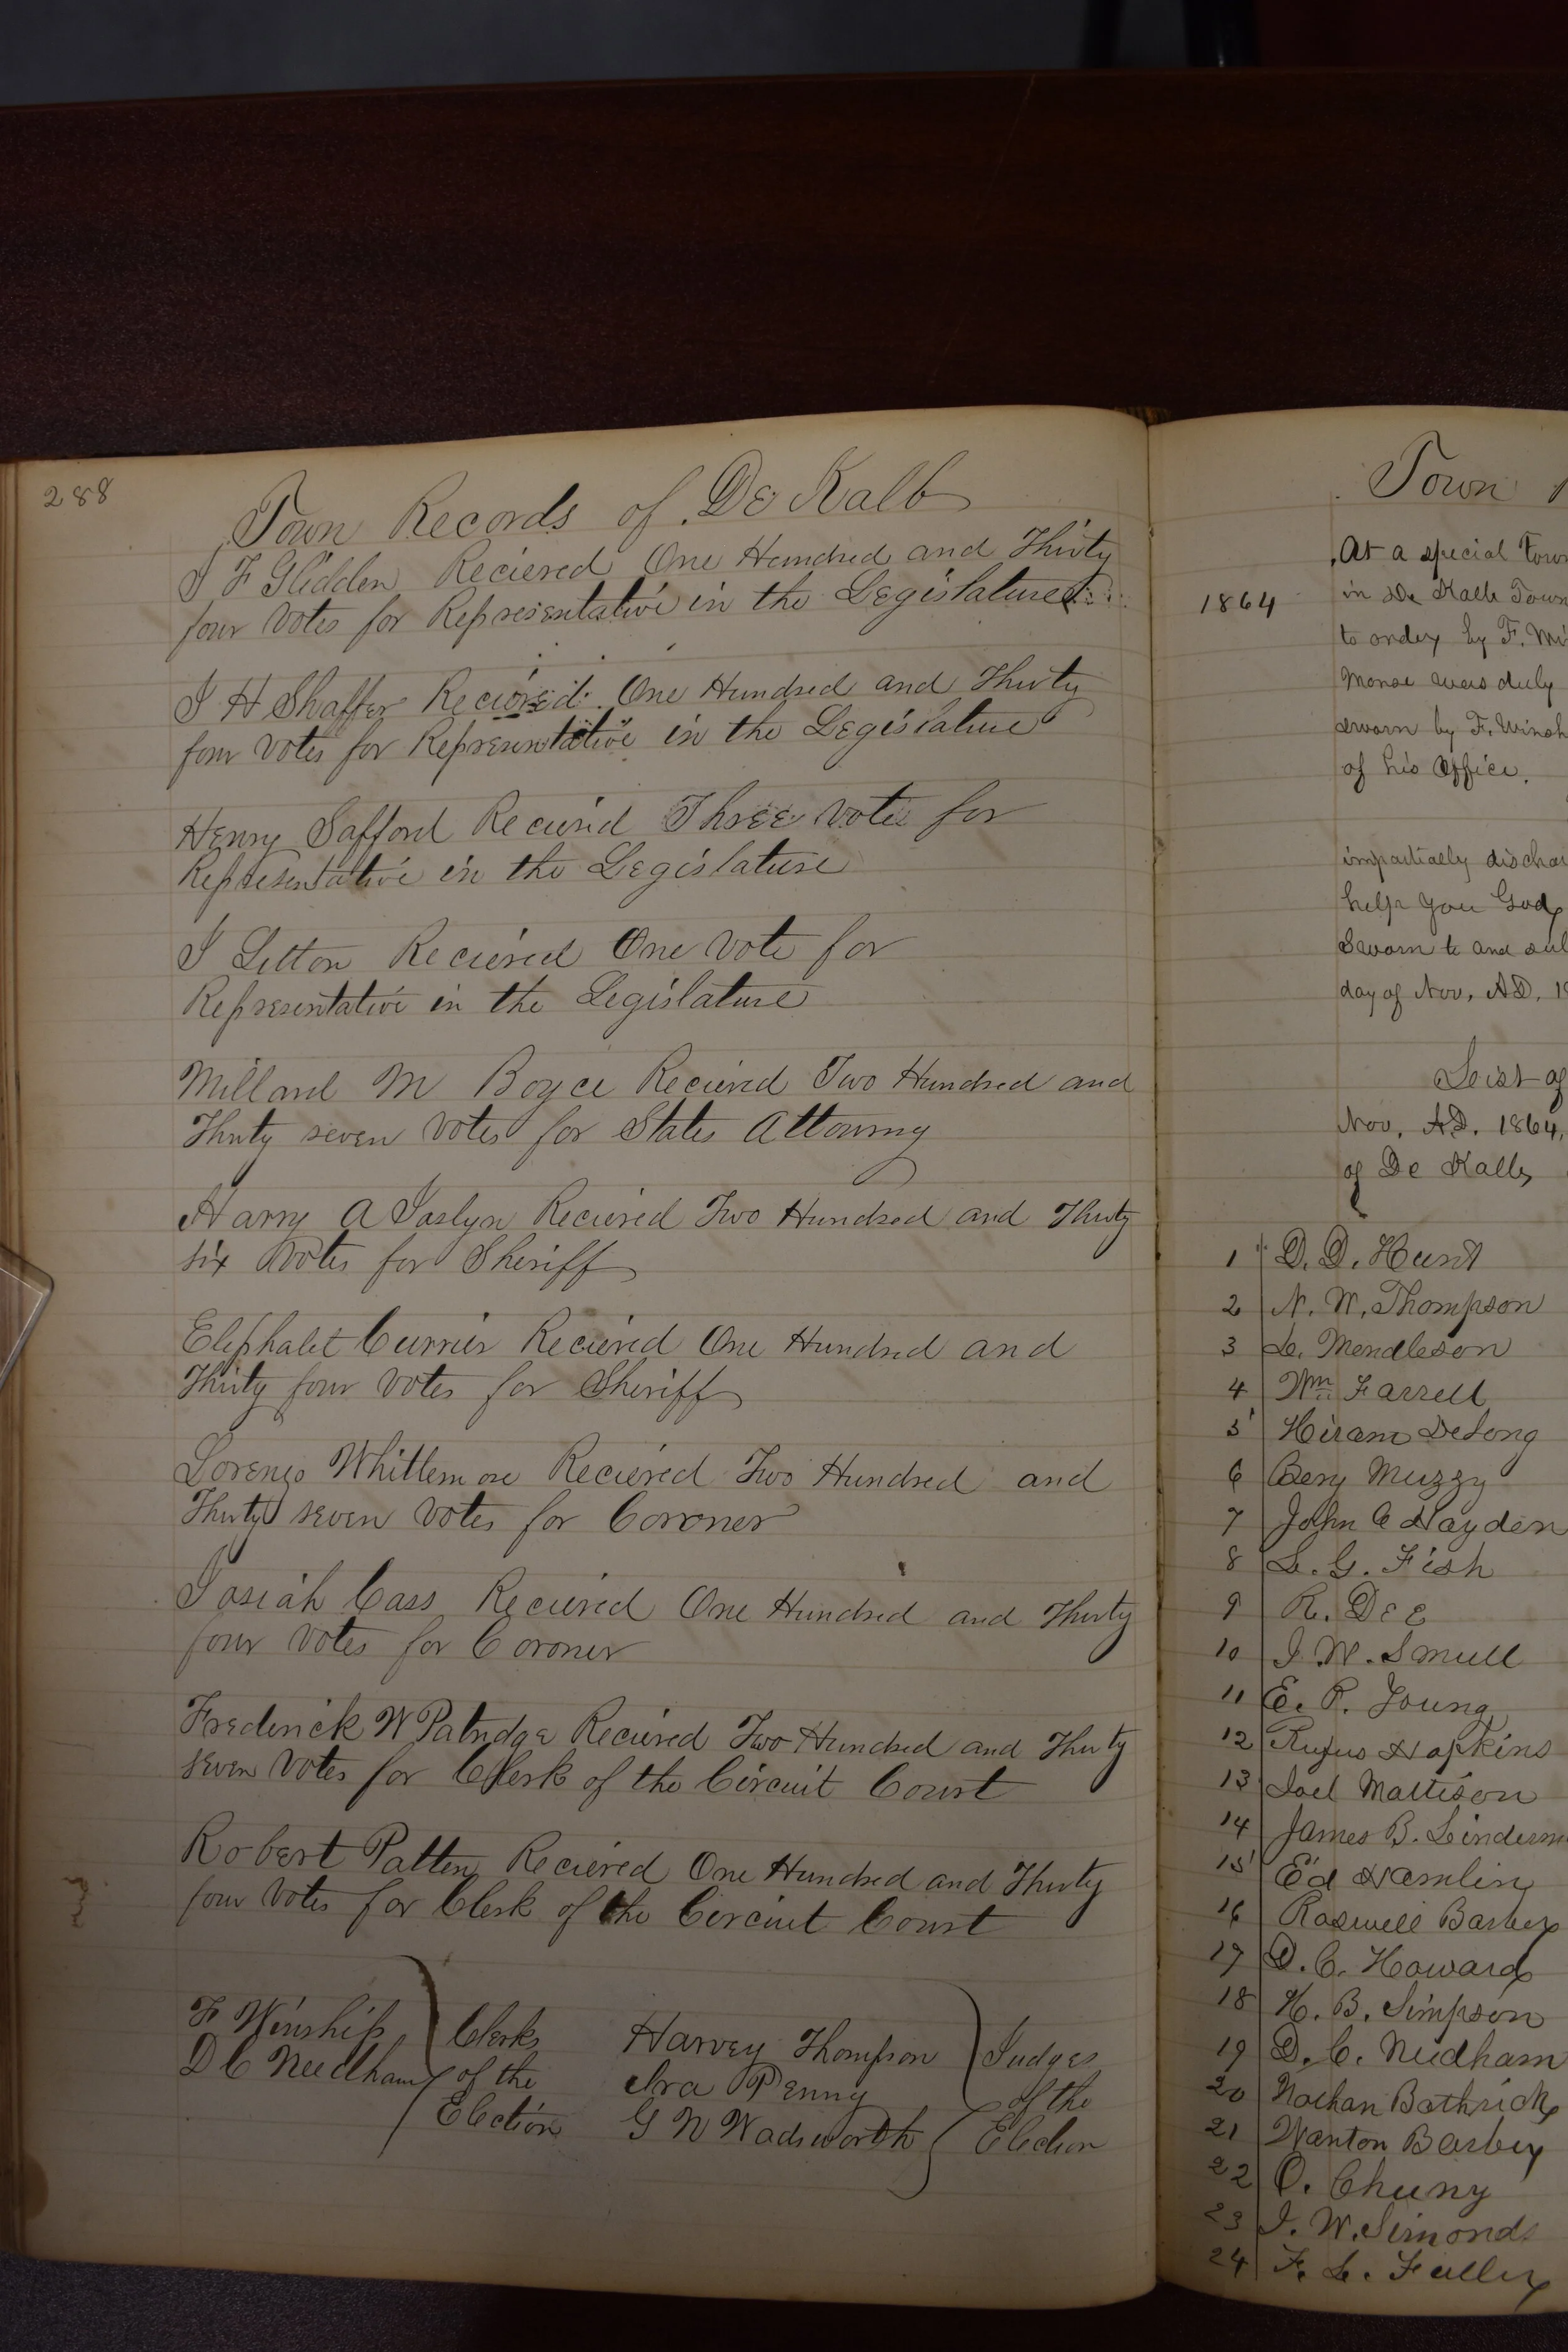 288
Town Records of De Kalb
J F Glidden Recieved One Hundred and Thirty
four Votes for Representative in the Legislature
J H Shaffer Recieved One Hundred and Thirty
four Votes for Representative in the Legislature
Henry Safford Recieved Three Vote for
Representative in the Legislature
J Letton Recieved One Vote for
Representative in the Legislature
Millard M Boyce Recieved Two Hundred and
Thirty seven Votes for States Attorny
Harry A Joslyn Recieved Two Hundred and Thirty
six Votes for Sheriff
Eliphalet Currier Recieved One Hundred and
Thirty four Votes for Sheriff
Lorenzo Whittemore Recieved Two Hundred and
Thirty seven Votes for Coroner
Josiah Cass Recieved One Hundred and Thirty
four Votes for Coroner
Frederick W Patridge Recieved Two Hundred and Thirty
seven Votes for Clerk of the Circuit Court
Robert Patten Recieved One Hundred and Thirty
four Votes for Clerk of the Circuit Court
F Winship
D C Needham
Clerks
of the
Election
Harvey Thompson
Ira Penny
G W Wadsworth
Judges
of the
Election
Town
1864
At a special Town
in De Kalb Town
to order by F. Wi
Morse was duly
sworn by F. Winsh
of his Office.
impartially dischar
help you God,
Sworn to and sub
day of Nov, AD, 18
List of
Nov, AD. 1864,
of De Kalb,
1 D. D. Hunt
2 N. W. Thompson
3 L. Mendleson
4 Wm Farrell
5 Hiram DeLong
6 Benj Muzzy
7 John C Hayden
8 L. G. Fish
9 R. Dee
10 J. W. Smull
11 E. P. Young
12 Rufus Hopkins
13 Joel Mattison
14 James B. Linderm
15 Ed Hamlin
16 Roswell Barber
17 D. C. Howard
18 H. B. Simpson
19 D. C. Needham
20 Nathan Bathrick
21 Wanton Barber
22 O. Cheeny
23 J. W. Simonds
24 F. L. Fuller